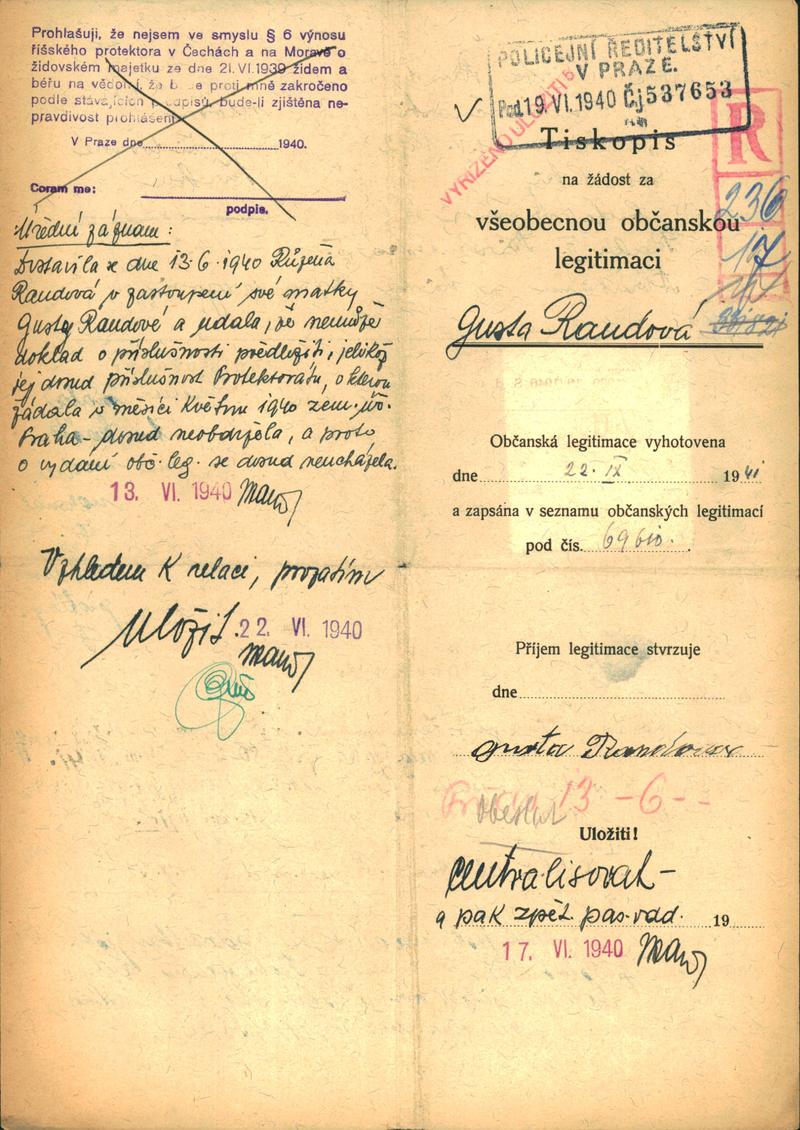 Prohlašuji, že nejsem ve smyslu § 6 výnosu
říšského protektora v Čechách a na Moravě o
židovském majetku ze dne 21. VI. 1939 židem a
béru na vědomí, že b e proti mně zakročeno
podle stávajících předpisů, bude-li zjištěna ne-
pravdivost prohlášení.
V Praze dne 1940.
Coram me:
podpis.
Úřední záznam:
Dostavila se dne 13.6.1940 Růžena
Raudová v zastoupení své matky
Gusty Raudové a udala, že nemůže
doklad o příslušnosti předložiti, jelikož
jej dosud příslušnost Protektorátu, o kterou
žádala v měsíci Květnu 1940 zem. úř.
Praha - dosud neobdržela, a proto
o vydání obč. leg. se dosud neucházela.
13. VI. 1940
Vzhledem k relaci, prozatím
Uložit. 22. VI. 1940
POLICEJNÍ ŘEDITELSTVÍ
V PRAZE.
Pod 19. VI. 1940 Čj 537653
VYŘÍZENO ULOŽITI
R
Tiskopis
na žádost za
236
všeobecnou občanskou
17
legitimaci
Gusta Raudová
Občanská legitimace vyhotovena
dne 22. IX 1941
a zapsána v seznamu občanských legitimací
pod čís. 69610.
Příjem legitimace stvrzuje
dne
Gusta Raudova
13 - 6 - -
Obeslat
Uložiti!
Centralisovat -
a pak zpět pas. odd. 19
17. VI. 1940